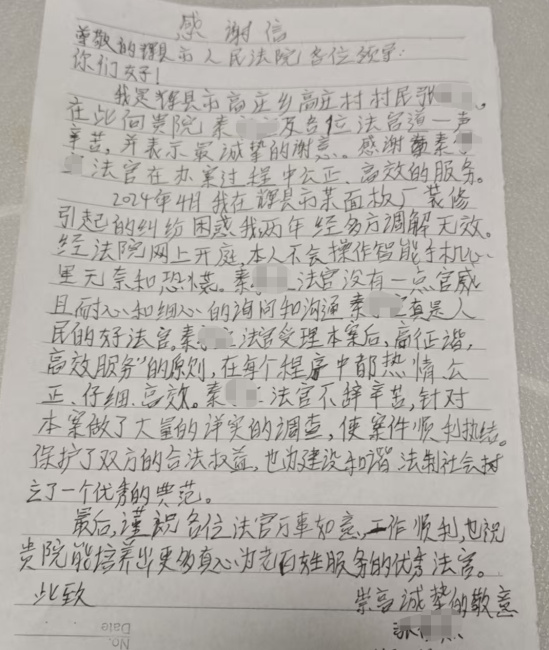 感谢信
尊敬的辉县市人民法院各位领导:
你们好!
我是辉县市高庄乡高庄村村民张
在此向贵院秦 及各位法官道一声
辛苦,并表示最诚挚的谢意。感谢秦
法官在办案过程中公正、高效的服务。
2024年4月我在辉县市某面板厂装修
引起的纠纷困惑我两年经多方调解无效。
经法院网上开庭,本人不会操作智能手机心
里无奈和恐惧。秦 法官没有一点官威
且耐心和细心的询问和沟通秦 真是人
民的好法官。秦 法官受理本案后,
高效服务"的原则,在每个程序中都热情公
正、仔细、高效。秦 法官不辞辛苦,针对
本案做了大量的详实的调查,使案件顺利执结。
保护了双方的合法权益,也为建设和谐法制社会树
立了一个优秀的典范。
最后,谨祝各位法官万事如意,工作顺利,也祝
贵院能培养出更多真心为老百姓服务的优秀法官。
此致
崇高诚挚的敬意
No.
Date